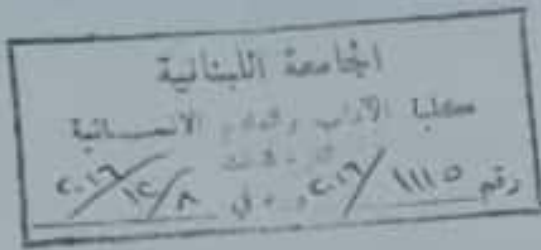 الجامعة اللبنانية
كلية الآداب والعلوم الانسانية
رقم ١١١٥/٢٠١٦ في ٨/١٢/٢٠١٦